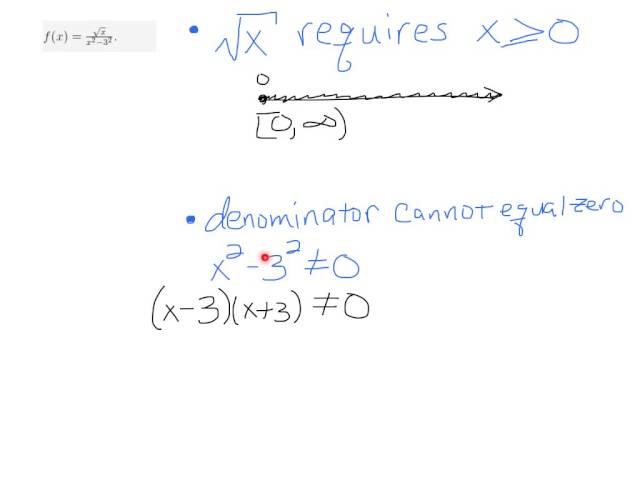 f(x) = √x / x² − 3².
• √x requires x ≥ 0
0
[0, ∞)
• denominator cannot equal zero
x² − 3² ≠ 0
(x − 3)(x + 3) ≠ 0